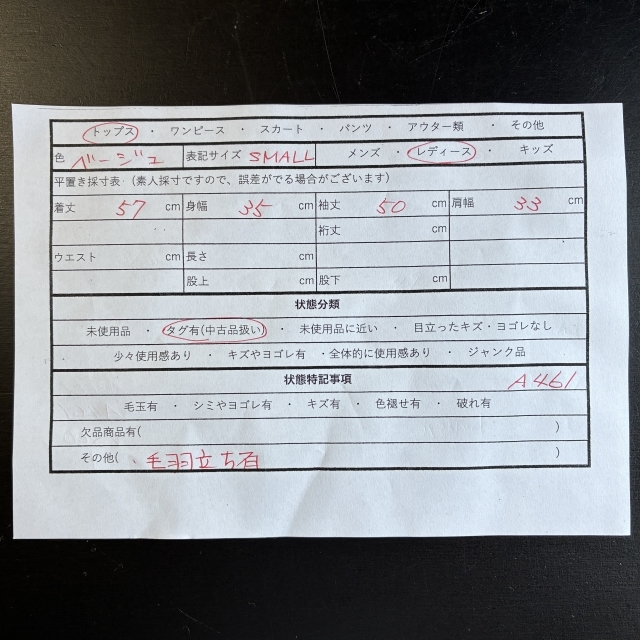 トップス ・ ワンピース ・ スカート ・ パンツ ・ アウター類 ・ その他
色 ベージュ 表記サイズ SMALL メンズ ・ レディース ・ キッズ
平置き採寸表（素人採寸ですので、誤差がでる場合がございます）
着丈 57 cm 身幅 35 cm 袖丈 50 cm 肩幅 33 cm
裄丈 cm
ウエスト cm 長さ cm
股上 cm 股下 cm
状態分類
未使用品 ・ タグ有(中古品扱い) ・ 未使用品に近い ・ 目立ったキズ・ヨゴレなし
少々使用感あり ・ キズやヨゴレ有 ・全体的に使用感あり ・ ジャンク品
状態特記事項 A461
毛玉有 ・ シミやヨゴレ有 ・ キズ有 ・ 色褪せ有 ・ 破れ有
欠品商品有( )
その他( 毛羽立ち有 )